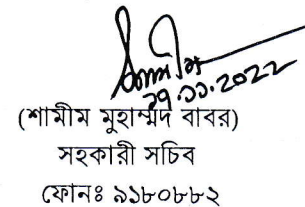 ২৭.১১.2022
(শামীম মুহাম্মদ বাবর)
সহকারী সচিব
ফোনঃ ৯১৮০৮৮২